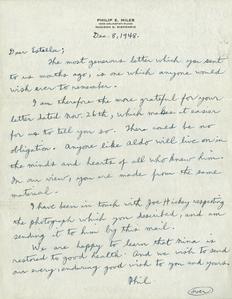 PHILIP E. MILES
MADISON 5, WISCONSIN
Dec. 8, 1948.
Dear Estella;
The most generous letter which you sent
to us months ago, is one which anyone would
wish ever to remember.
I am therefore the more grateful for your
letter dated Nov. 26th, which makes it easier
for us to tell you so. There could be no
obligation. Anyone like Aldo will live on in
the minds and hearts of all who knew him.
In our view, you are made from the same
material.
I have been in touch with Joe Hickey respecting
the photograph which you described, and am
sending it to him by this mail.
We are happy to learn that Nina is
restored to good health. And we wish to send
our very, enduring good wish to you and yours.
Phil.
(over)